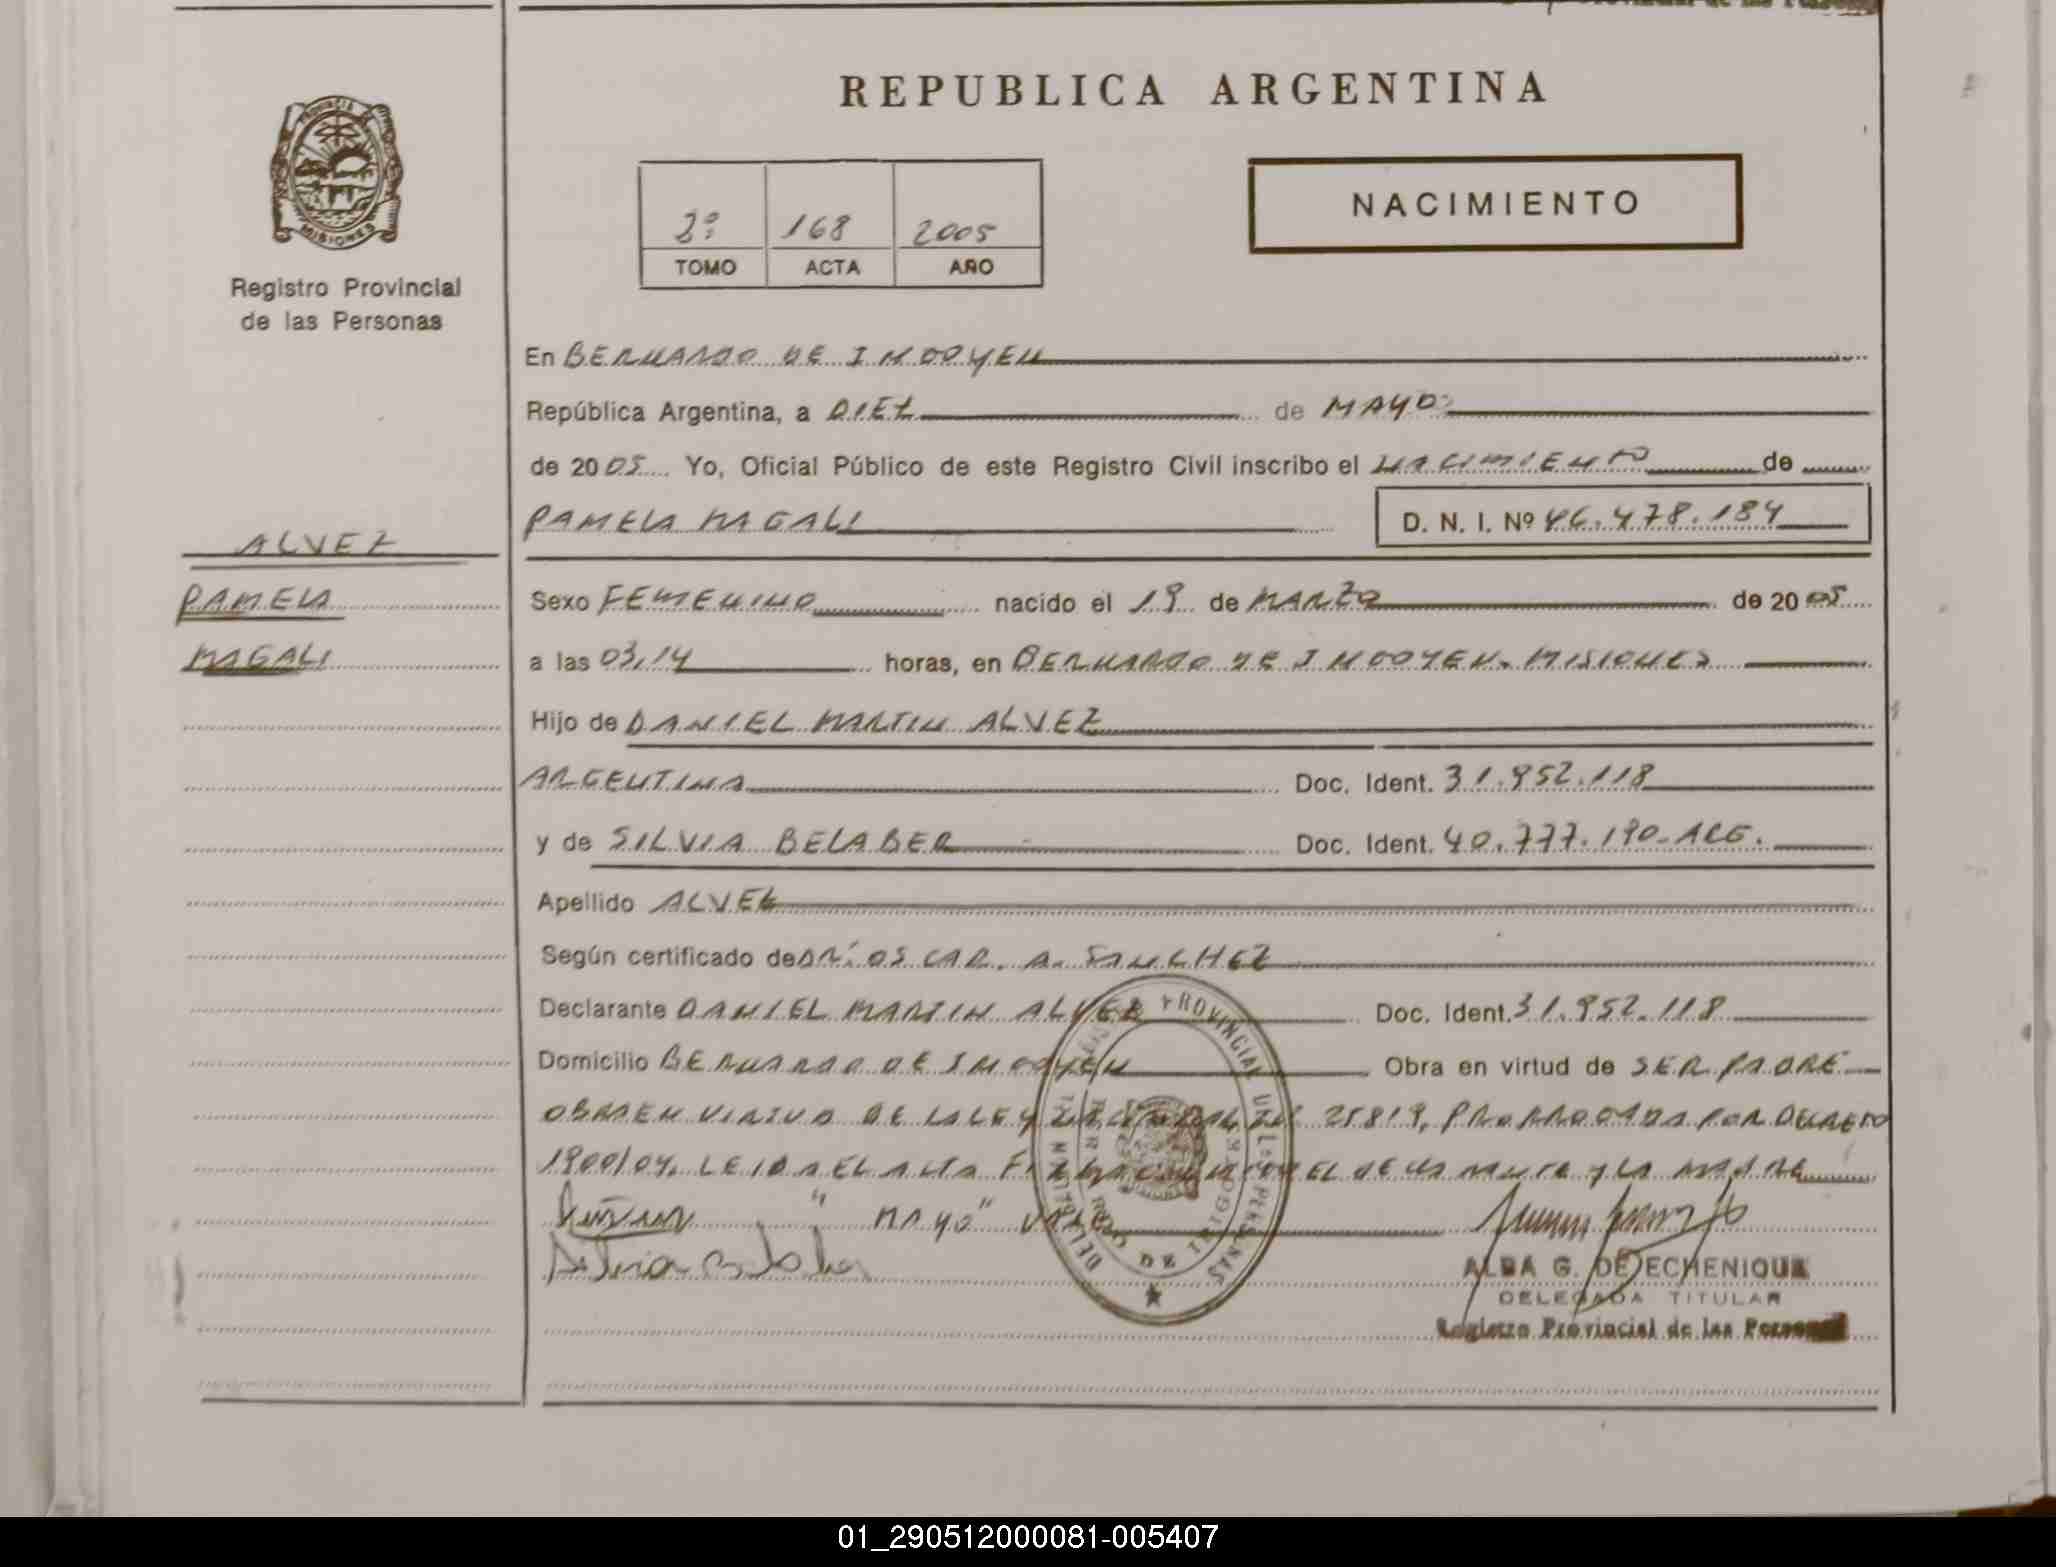 REPUBLICA ARGENTINA
PROVINCIA DE MISIONES
Registro Provincial
de las Personas
NACIMIENTO
2º 168 2005
TOMO ACTA AÑO
En BERNARDO DE IRIGOYEN
República Argentina, a DIEZ de MAYO
de 2005 Yo, Oficial Público de este Registro Civil inscribo el NACIMIENTO de
PAMELA MAGALI D. N. I. Nº 46.478.184
ALVEZ
PAMELA
MAGALI
Sexo FEMENINO nacido el 19 de MARZO de 2005
a las 03,14 horas, en BERNARDO DE IRIGOYEN. MISIONES
Hijo de DANIEL MARTIN ALVEZ
ARGENTINA Doc. Ident. 31.952.118
y de SILVIA BELABER Doc. Ident. 40.777.190-ARG.
Apellido ALVEZ
Según certificado de DR. OSCAR. A. SANCHEZ
Declarante DANIEL MARTIN ALVEZ Doc. Ident. 31.952.118
Domicilio BERNARDO DE IRIGOYEN Obra en virtud de SER PADRE
OBRA EN VIRTUD DE LA LEY NACIONAL Nº 25819, PRORROGADA POR DECRETO
1900/04. LEIDA EL ACTA FIRMA EL DECLARANTE Y LA MADRE
"MAYO" VALE
Silvia Belaber
ALBA G. DE ECHENIQUE
DELEGADA TITULAR
Registro Provincial de las Personas
01_290512000081-005407